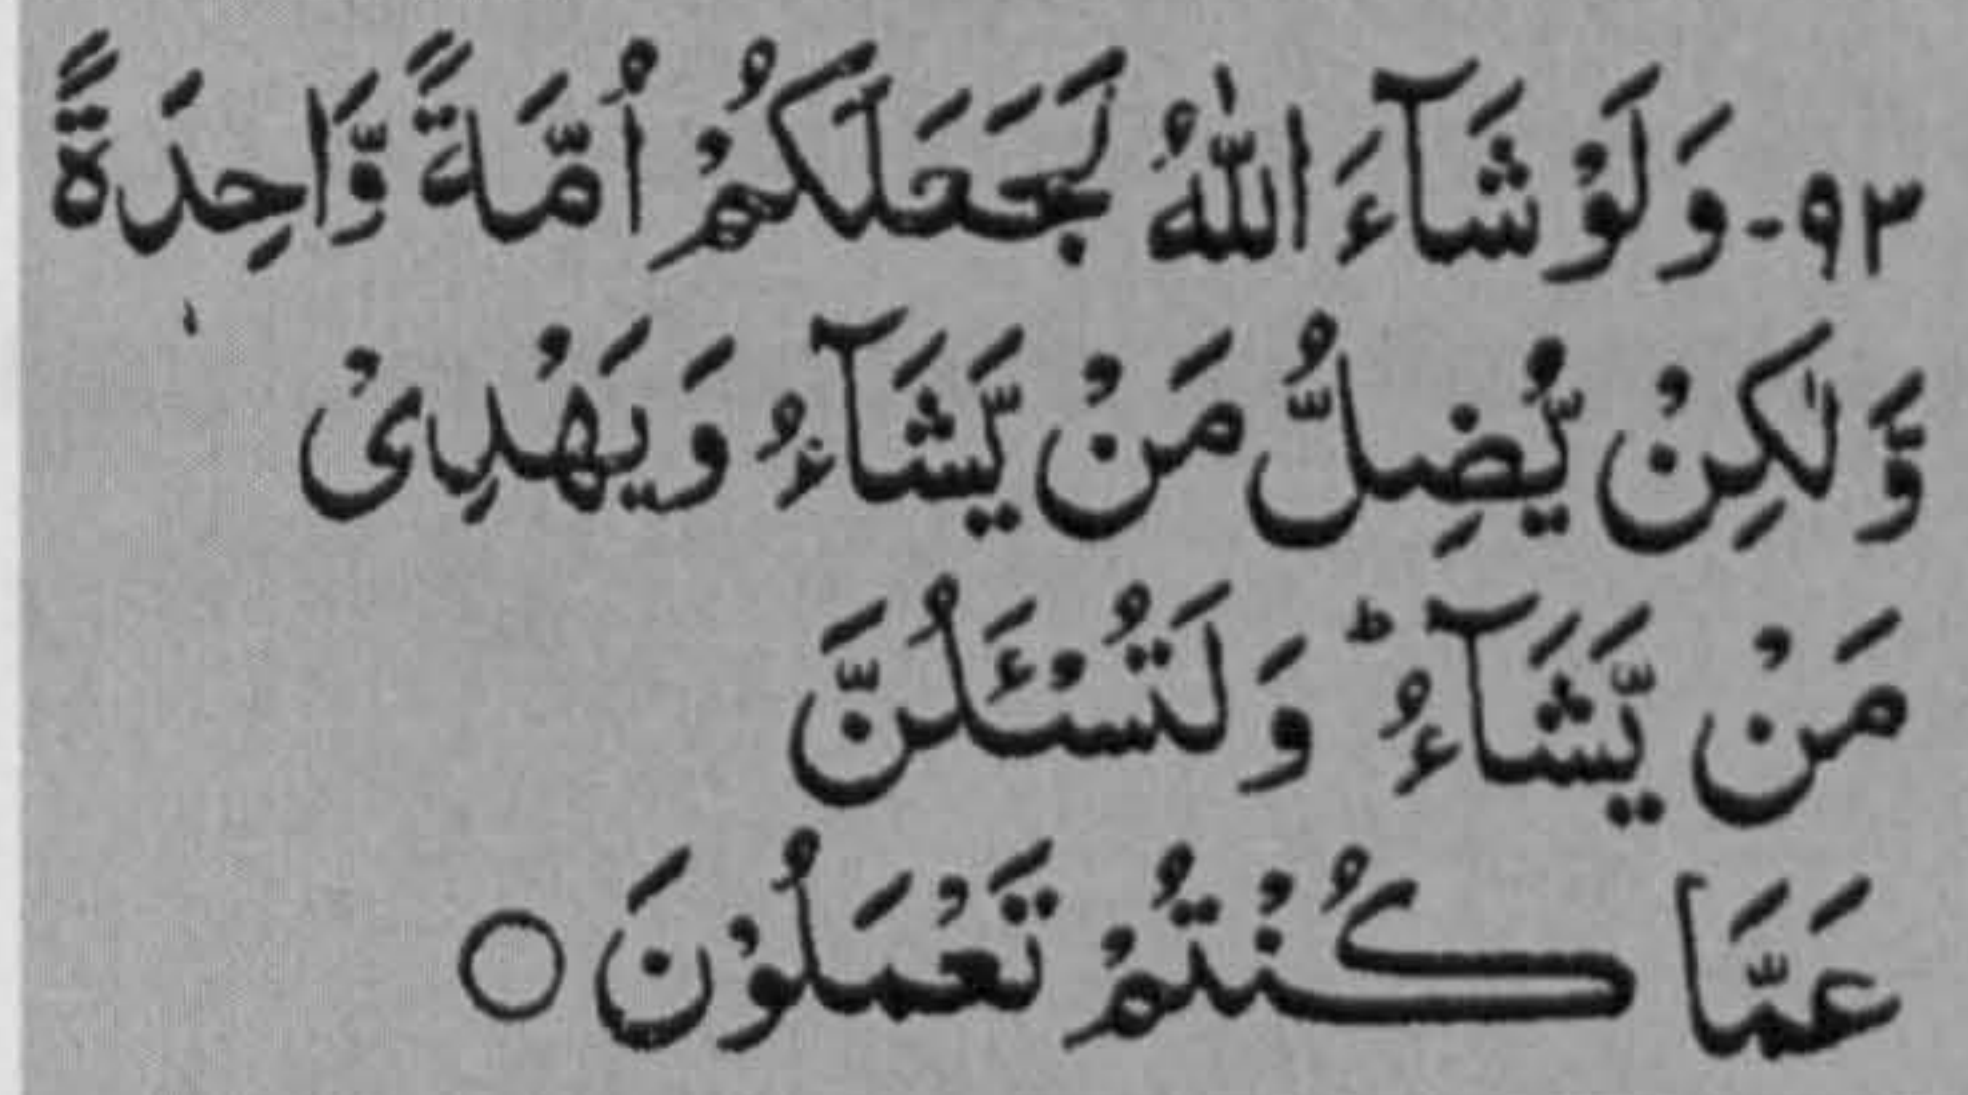 ٩٣- وَلَوْ شَآءَ اللّٰهُ لَجَعَلَكُمْ اُمَّةً وَّاحِدَةً
وَّلٰكِنْ يُّضِلُّ مَنْ يَّشَآءُ وَيَهْدِىْ
مَنْ يَّشَآءُ ؕ وَلَتُسْئَلُنَّ
عَمَّا كُنْتُمْ تَعْمَلُوْنَ ○